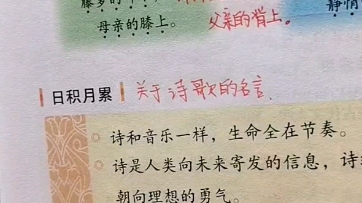 母亲的膝上。
父亲的背上。
静情
日积月累
关于诗歌的名言
诗和音乐一样，生命全在节奏。
诗是人类向未来寄发的信息，诗
朝向理想的勇气。